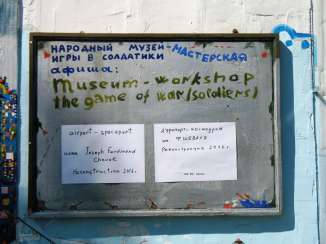 НАРОДНЫЙ МУЗЕЙ-МАСТЕРСКАЯ
ИГРЫ В СОЛДАТИКИ
афиша:
Museum-workshop
the game of war/soldiers/
airport - spaceport
Joseph Ferdinand
Reconstruction
Аэропорт-космодром
Реконструкция